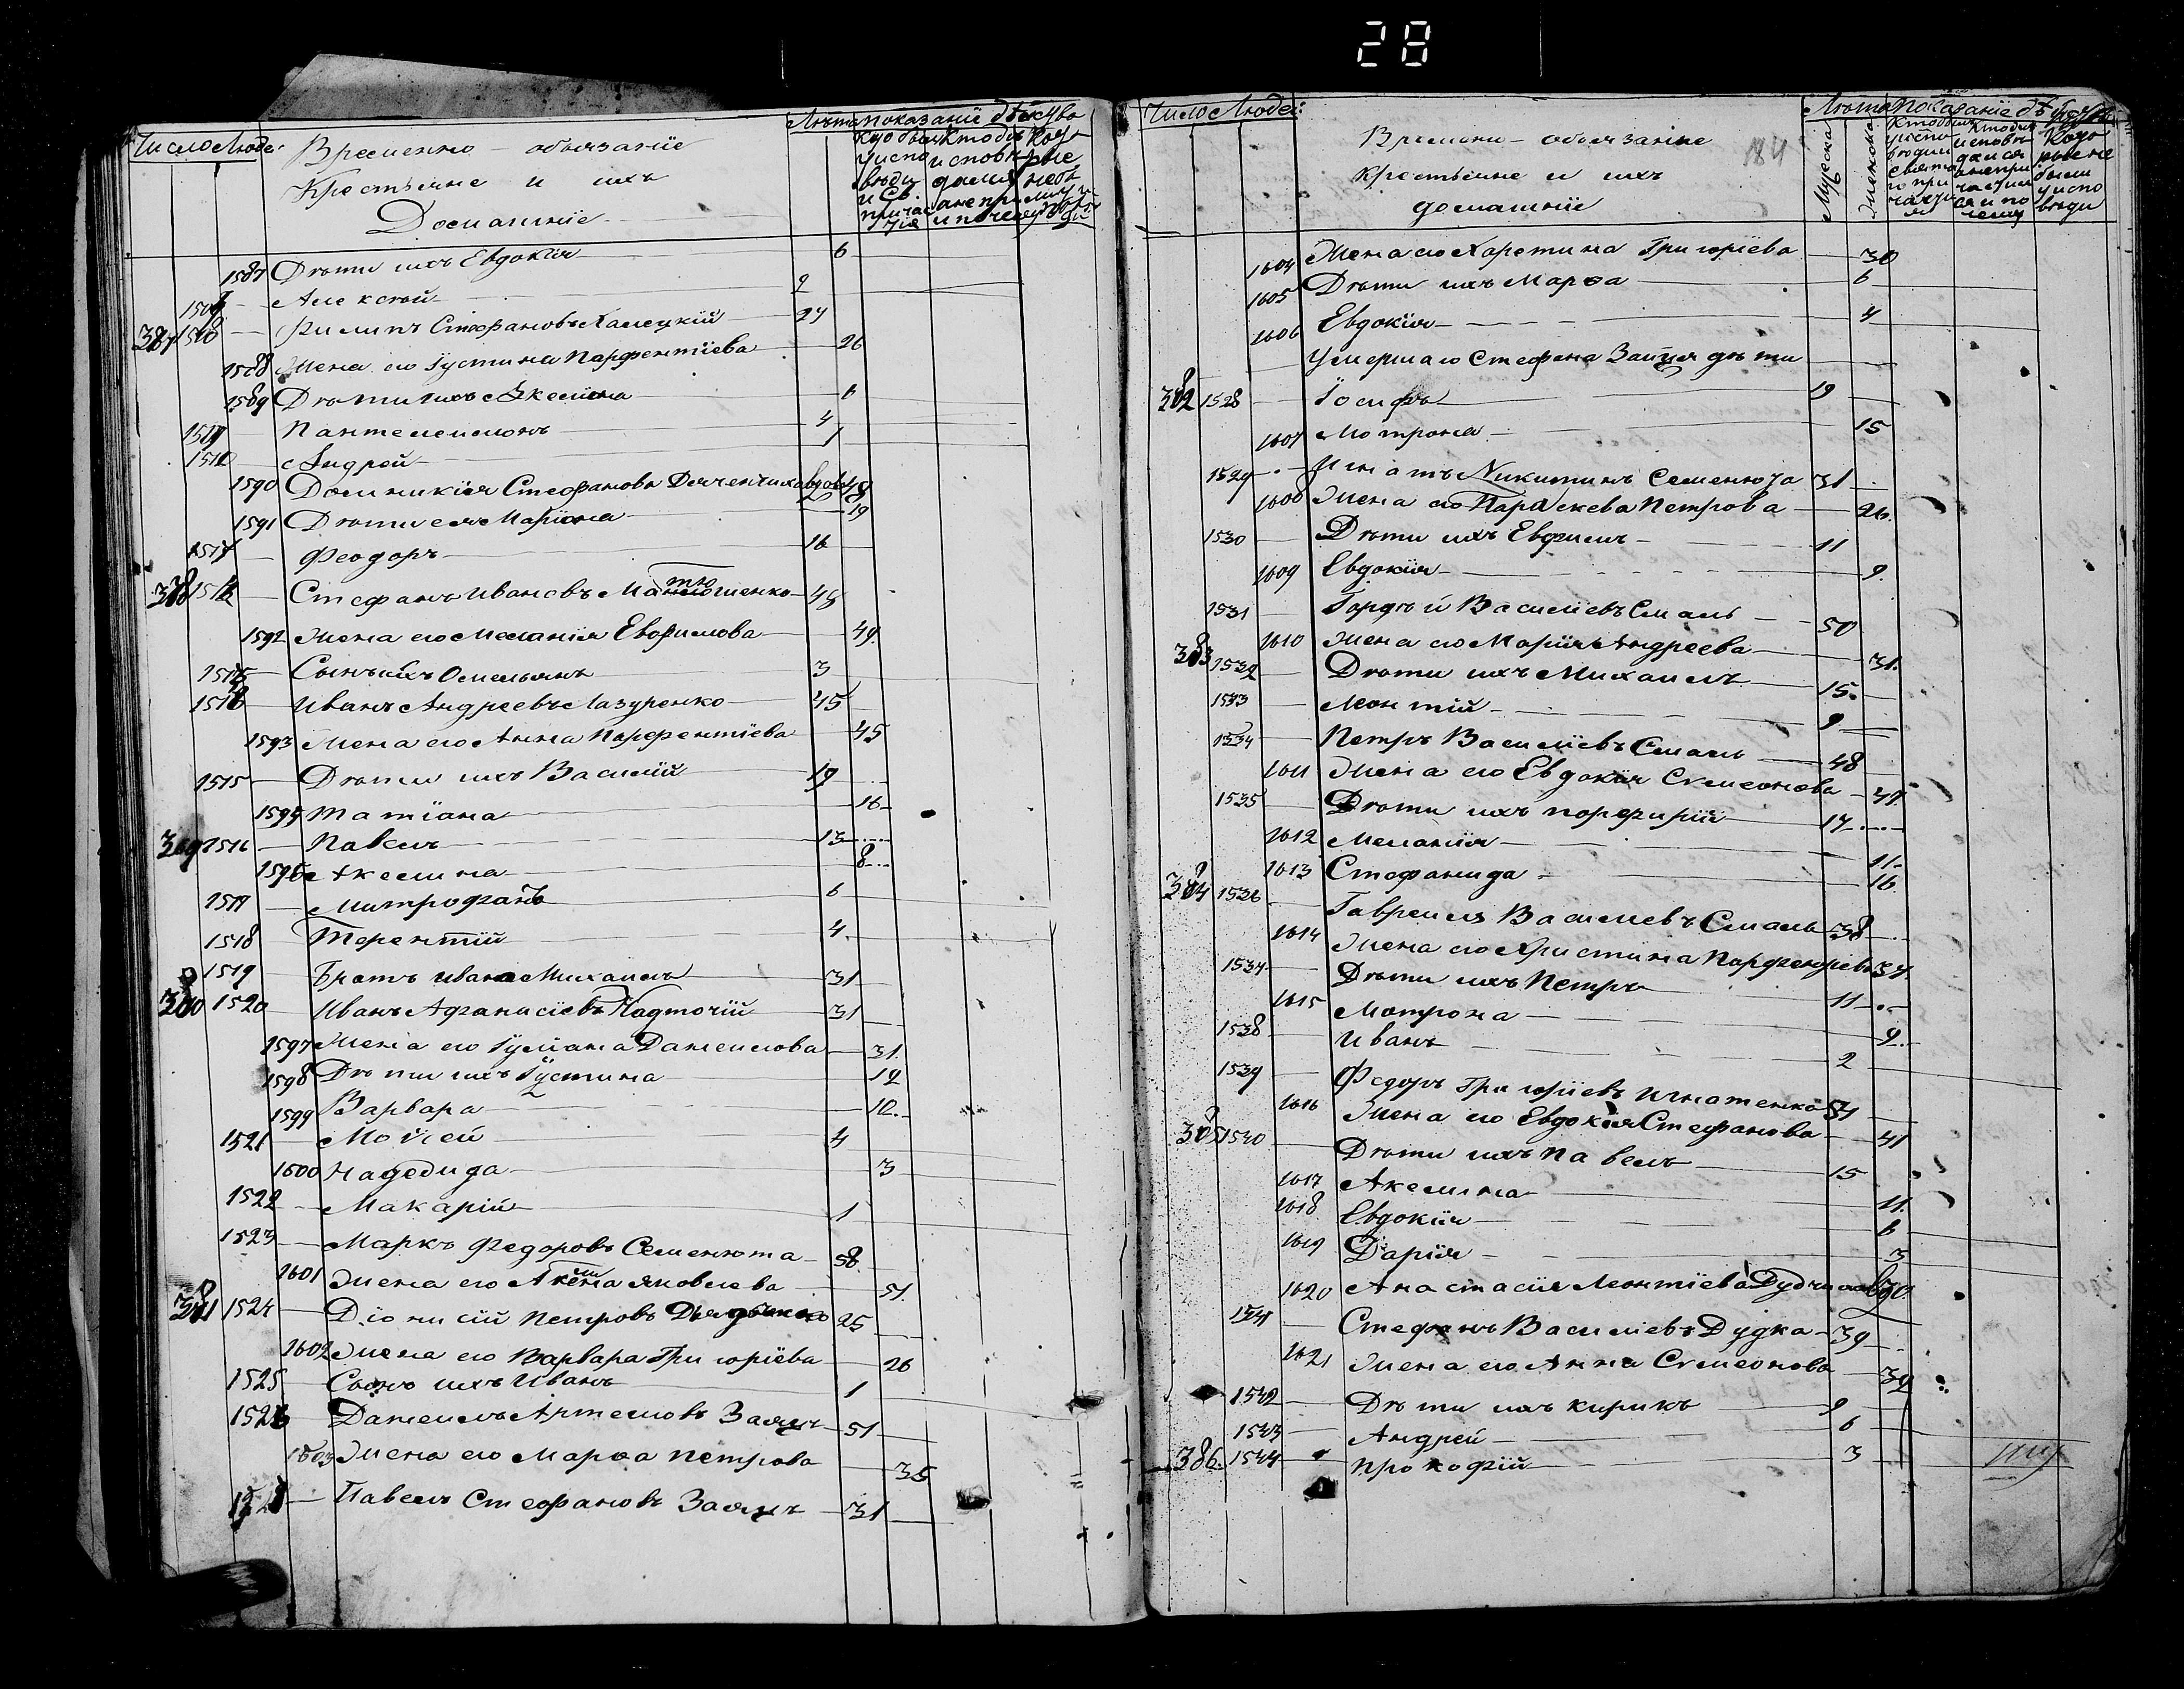 28
Число Люде
Временно – обязанніе
Крестьяне и ихъ
Домашніе
Лѣта показаніе дѣйства
1587 Дѣти ихъ Евдокія 6
Алексѣй 2
Филипъ Стефановъ 27
1588 Жена его Іустина Парфентіева 26
1589 Дѣти ихъ Акелина
Пантелеимонъ 4
Андрей 1
1590 Доминикія Стефанова 48
1591 Дѣти ея Маріона 19
Феодоръ 16
Стефанъ Ивановъ 48
1592 Жена его Меланія Евфимова 49
Сынъ ихъ Омельянъ 3
Иванъ Андреевъ Лазуренко 45
1593 Жена его Анна Парфентіева 45
1515 Дѣти ихъ Василій 19
Татіана 16
1516 Павелъ 13
1595 Акелина 8
Митрофанъ 6
1518 Терентій 4
1519 Братъ Ивана Михаилъ 31
1520 Иванъ Афанасіевъ Надточій 31
1597 Жена его Іуліана Даніилова 31
1598 Дѣти ихъ Іустина 12
1599 Варвара 10
1521 Моисей 4
1600 3
1522 Макарій 1
1523 Маркъ Федоровъ Семенюта 58
1601 Жена его Акелина Яковлева 51
381 1524 Діонисій Петровъ 25
1602 Жена его Варвара Григоріева 26
1525 Сынъ ихъ Иванъ 1
1526 Даніилъ Артемовъ Заяцъ 51
1603 Жена его Марѳа Петрова 35
Павелъ Стефановъ Заяцъ 31
Число Людей:
Времени – обязаніие
крестьяне и ихъ
домашніе
184
Лѣта Показаніе дѣйства
Мужеска
Женска
1604 Жена его Харетина Григоріева 30
1605 Дѣти ихъ Марѳа 6
1606 Евдокія 4
Умершаго Стефана Зайця дѣти
382 1528 Іосифъ 19
1607 Мотрона 15
1529 Игнатъ Никитинъ Семенюта 31
1608 Жена его Параскева Петрова 26
1530 Дѣти ихъ Евфимъ 11
1609 Евдокія 9
1531 Гордѣй Василіевъ Смаль 50
1610 Жена его Марія Андреева 31
383 1532 Дѣти ихъ Михаилъ 15
1533 Леонтій 9
1534 Петръ Василіевъ Смаль 48
1611 Жена его Евдокія Семеонова 47
1535 Дѣти ихъ Порфирій 17
1612 Меланія 11
1613 Стефанида 16
384 1536 Гавреилъ Василіевъ Смаль 38
1614 Жена его Христина Парфентіева 37
1537 Дѣти ихъ Петръ 11
1615 Мотрона 9
1538 Иванъ 2
1539 Федоръ Григоріевъ Игнатенко 51
1616 Жена его Евдокія Стефанова 41
385 1540 Дѣти ихъ Павелъ 15
1617 Акелина 11
1618 Евдокія 6
1619 Дарія 3
1620 Анастасія Леонтіева
1541 Стефанъ Василіевъ Дудка 39
1621 Жена его Анна Семеонова 39
1542 Дѣти ихъ Кирикъ 9
1543 Андрей 6
386 1544 Прокофій 3